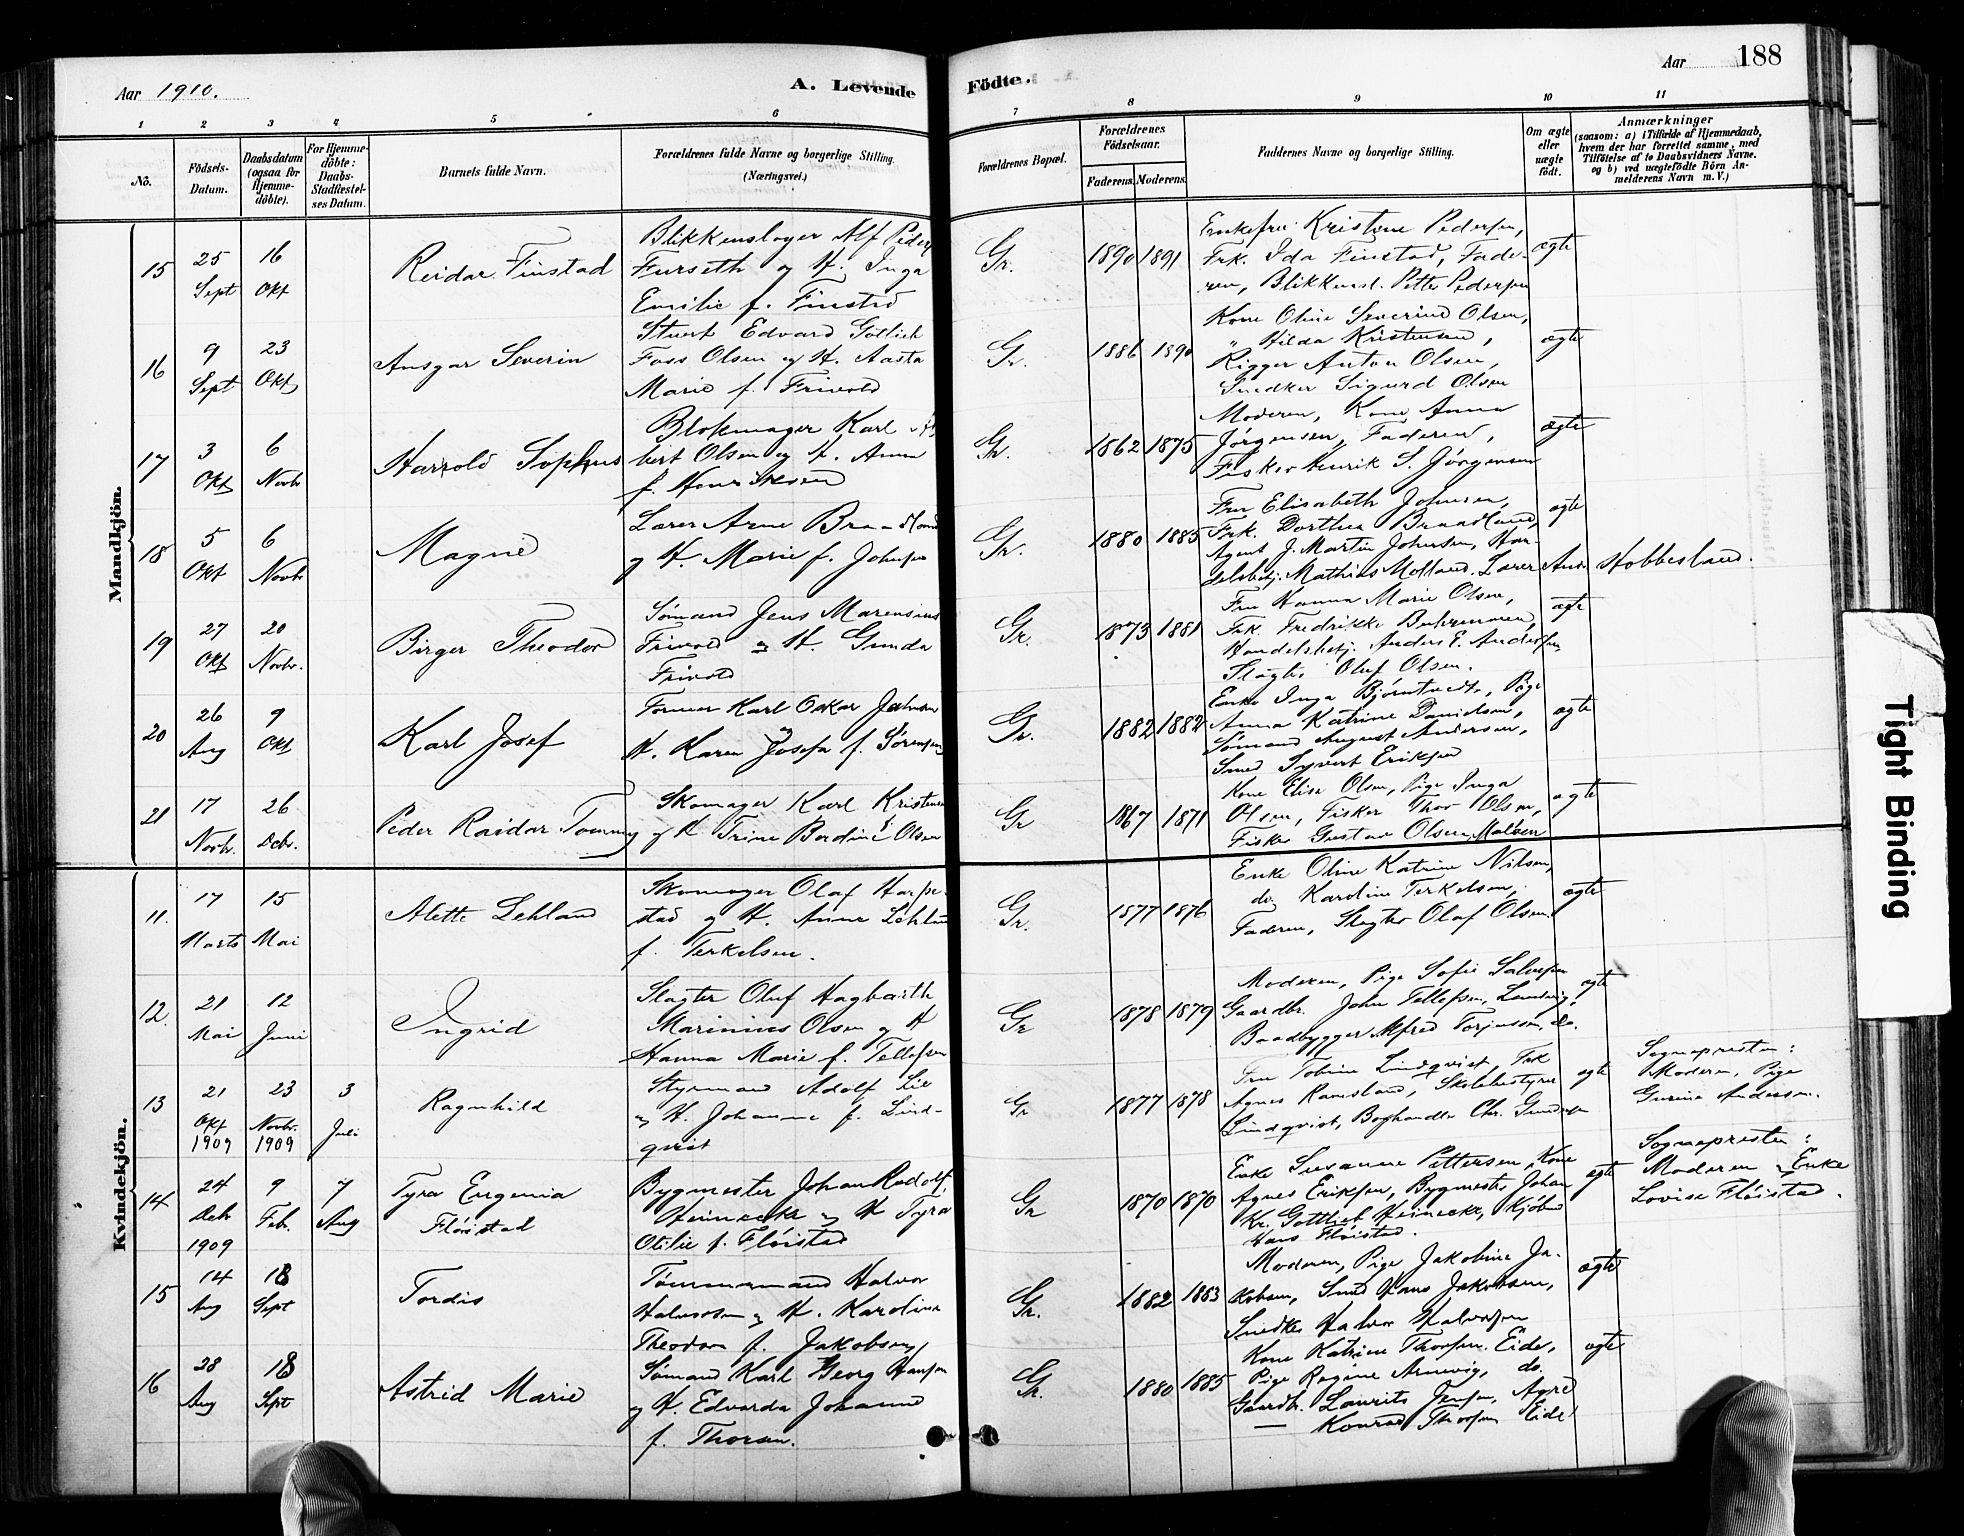 Aar 1910.
A. Levende Födte.
Aar 188
1 2 3 4 5 6 7 8 9 10 11
No.
Födsels-Datum.
Daabsdatum (ogsaa for Hjemme-döbte).
For Hjemme-döbte: Daabs-Stadfæstel-ses Datum.
Barnets fulde Navn.
Forældrenes fulde Navne og borgerlige Stilling.
(Næringsvei.)
Forældrenes Bopæl.
Forældrenes Födselsaar.
Faderens. Moderens.
Faddernes Navne og borgerlige Stilling.
Om ægte eller uægte födt.
Anmærkninger
(saasom: a) i Tilfælde af Hjemmedaab, hvem der har forrettet samme, med Tilföielse af to Daabsvidners Navne. og b) ved uægtefödte Börn An-melderens Navn m. V.)
Mandkjön.
15
25 Sept
16 Okt
Reidar Finstad
Blikkenslager Alf Peder
Furseth og H. Inga
Emilie f. Finstad
Gr.
1890 1891
Enkefru Kristine Pedersen,
Frk. Ida Finstad, Fade-
ren, Blikkensl. Petter Pedersen
ægte
16
9 Sept
23 Okt
Ansgar Severin
Stuert Edvard Gotlieb
Foss Olsen og H. Aasta
Marie f. Frivold
Gr.
1886 1890
Kone Oline Severine Olsen,
" Hilda Kristensen,
Rigger Anton Olsen,
Snedker Sigurd Olsen
ægte
17
3 Okt
6 Novbr
Harrold Sophus
Blokmager Karl
bert Olsen og H. Anna
f. Henriksen
Gr.
1862 1875
Moderen, Kone Anna
Jørgensen, Faderen,
Fisker Henrik S. Jørgensen
ægte
18
5 Okt
6 Novbr
Magne
Lærer Arne Braadland
og H. Marie f. Johnsen
Gr.
1880 1885
Fru Elisabeth Johnsen,
Frk. Dorthea Braadland,
Agent J. Martin Johnsen, Han-
delsbetj. Mathias Molland. Lærer And. Hobbesland.
ægte
19
27 Okt
20 Novbr.
Birger Theodor
Sømand Jens Marensius
Frivold og H. Gunda
Frivold
Gr.
1873 1881
Fru Hanna Marie Olsen,
Frk. Fredrikke
Handelsbetj. Anders E. Andersen,
Slagter Oluf Olsen.
ægte
20
26 Aug
9 Okt
Karl Josef
Former Karl Oskar Johnsen
og H. Karen Josefa f. Sørensen
Gr.
1882 1882
Enke Inga Bjørntvedt, Pige
Anna Katrine Danielsen,
Sømand August Andersen,
Smed Syvert Eriksen
ægte
21
17 Novbr.
26 Debr.
Peder Raidar Tommy
Skomager Karl Kristensen
og H Trine Bordine f. Olsen
Gr
1867 1871
Kone Elise Olsen, Pige Inga
Olsen, Fisker Thor Olsen,
Fisker Gustav Olsen, Maløen
ægte
Kvindekjön.
11.
17 Marts
15 Mai
Alette Lehland
Skomager Olaf Harpe-
stad og H. Anne Lehland
f. Terkelsen.
Gr.
1877 1876
Enke Oline Katrine Nilsen,
do. Karoline Terkelsen,
Faderen, Slagter Olaf Olsen.
ægte
12.
21 Mai
12 Juni
Ingrid
Slagter Oluf Hagbarth
Marinius Olsen og H
Hanna Marie f. Tellefsen
Gr
1878 1879
Moderen, Pige Sofie Salvesen
Gaardbr. John Tellefsen, Landvig,
Baadbygger Alfred Torjussen, do.
ægte
13
21 Okt 1909
23 Novbr. 1909
3 Juli
Ragnhild
Styrmand Adolf Lie
og H. Johanne f. Lind-
qvist
Gr
1877 1878
Fru Tobine Lindqvist, Frk
Agnes Ramsland, Skolebestyrer
Lindqvist, Boghandler Chr. Gundersen
ægte
Sognepresten:
Moderen, Pige
Gurine Andersen.
14
24 Debr 1909
9 Febr.
7 Aug
Tyra Eugenia
Fløistad
Bygmester Johan Rudolf
Heinecke og H Tyra
Otilie f. Fløistad
Gr
1870 1870
Enke Susanne Pettersen, Kone
Agnes Eriksen, Bygmester Johan
Kr. Gottlieb Heinecke, Kjøbmd
Hans Fløistad.
ægte
Sognepresten:
Moderen og Enke
Lovise Fløistad.
15
14 Aug
18 Sept
Tordis
Tømmermand Halvor
Halvorsen og H. Karoline
Theodora f. Jakobsen
Gr.
1882 1883
Moderen, Pige Jakobine Ja-
kobsen, Smed Hans Jakobsen,
Snedker Halvor Halvorsen
ægte
16
28 Aug
18 Sept
Astrid Marie
Sømand Karl Georg Hansen
og H. Edvarda Johanne
f. Thorsen.
Gr.
1880 1885
Kone Katrine Thorsen, Eide,
Pige Regine Arnevig, do.
Gaardbr. Laurits Jensen,
— Konrad Thorsen Eide
ægte
Tight Binding